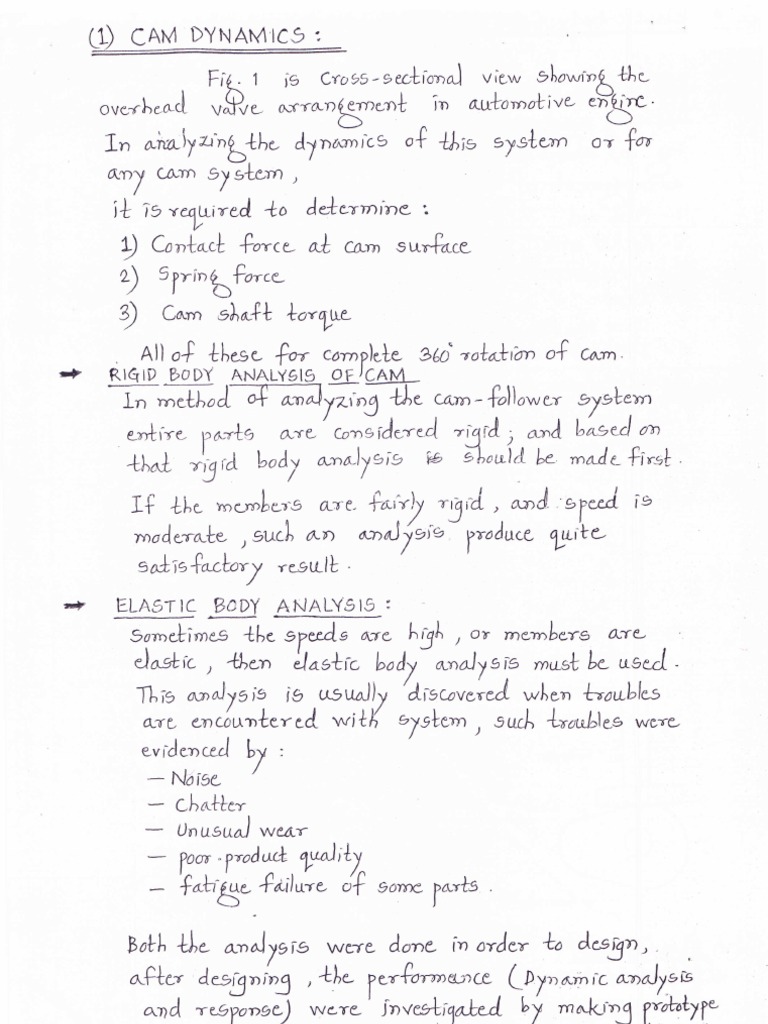 (1) CAM DYNAMICS :
Fig. 1 is Cross-sectional view showing the
overhead valve arrangement in automotive engine.
In analyzing the dynamics of this system or for
any cam system,
it is required to determine :
1) Contact force at cam surface
2) Spring force
3) Cam shaft torque
All of these for complete 360° rotation of cam.
→ RIGID BODY ANALYSIS OF CAM
In method of analyzing the cam-follower system
entire parts are considered rigid; and based on
that rigid body analysis is should be made first.
If the members are fairly rigid, and speed is
moderate, such an analysis produce quite
satisfactory result.
→ ELASTIC BODY ANALYSIS :
Sometimes the speeds are high, or members are
elastic, then elastic body analysis must be used.
This analysis is usually discovered when troubles
are encountered with system, such troubles were
evidenced by :
— Noise
— Chatter
— Unusual wear
— poor product quality
— fatigue failure of some parts.
Both the analysis were done in order to design,
after designing, the performance (Dynamic analysis
and response) were investigated by making prototype